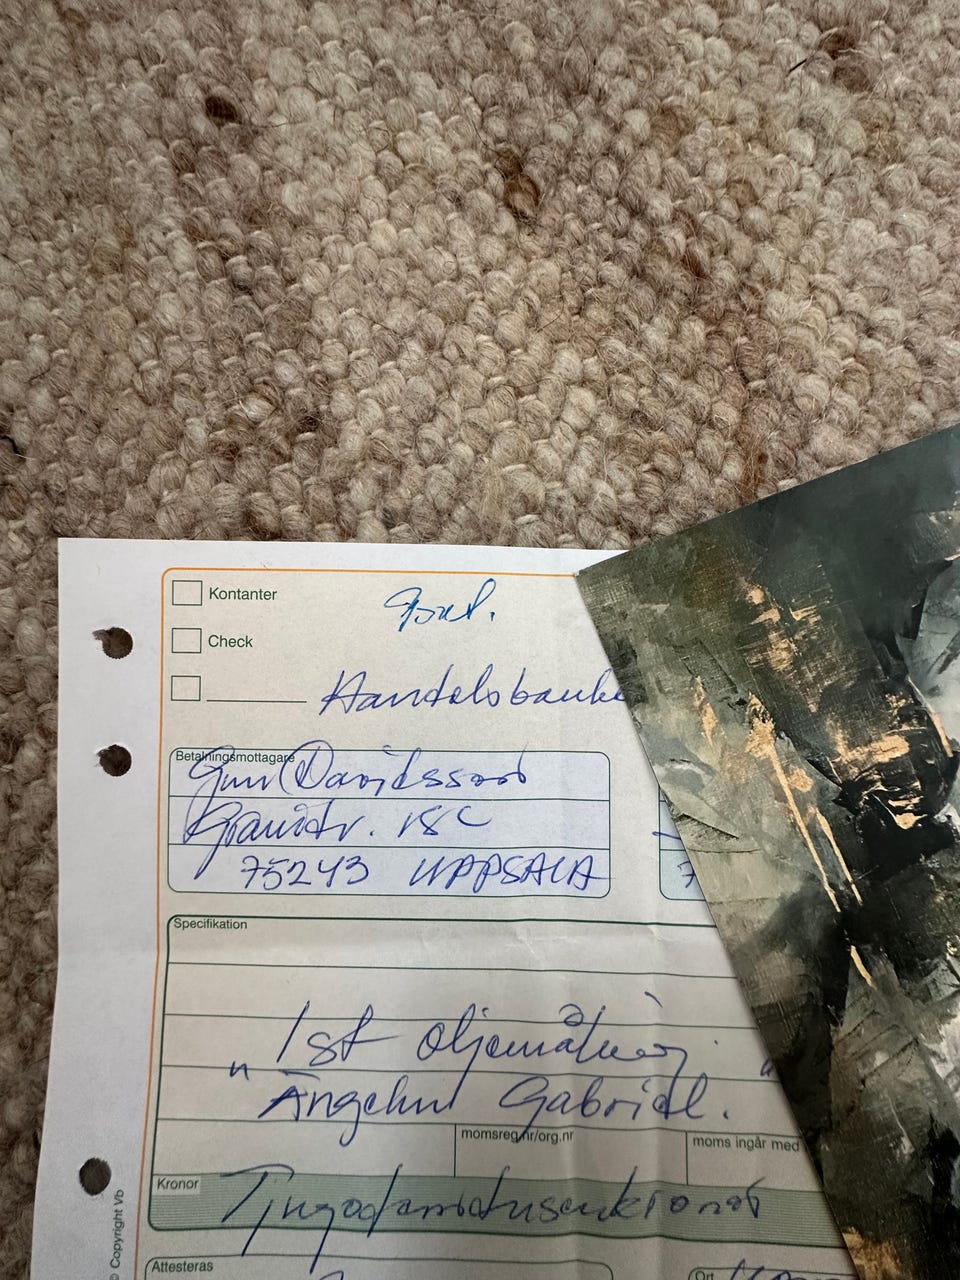 Kontanter
Check
Handelsbanke
Betalningsmottagare
Gun Davidsson
Granitv. 15C
75243 UPPSALA
7
Specifikation
1st oljemålning.
" Ängeln Gabriel. "
momsreg.nr/org.nr
moms ingår med
Kronor
Attesteras
Ort
© Copyright Vb